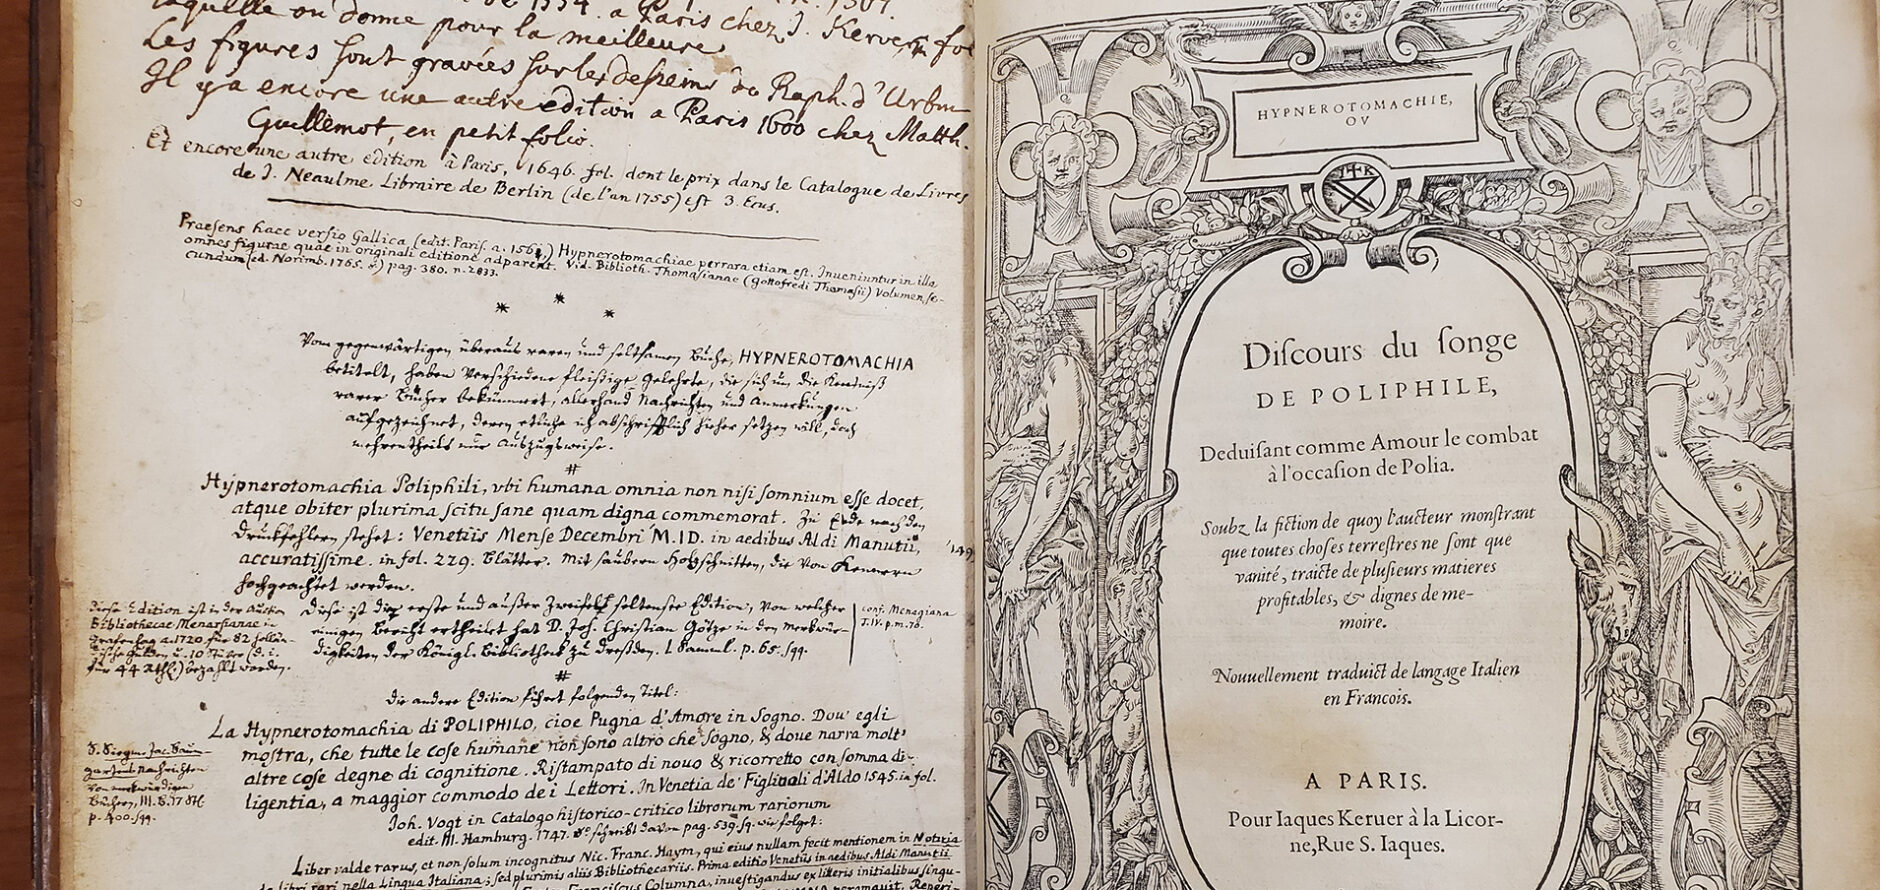 laquelle on donne pour la meilleure
Les figures sont gravées sur les desseins du Raph. d'Urbin
Il y a encore une autre edition a Paris 1600 chez Matth.
Guillemot, en petit folio.
Et encore une autre edition à Paris, 1646. fol. dont le prix dans le Catalogue de Livres
de J. Neaulme Libraire de Berlin (de l'an 1755) est 3. Ecus.
Praesens haec versio Gallica (edit. Paris. a. 1561,) Hypnerotomachiae perrara etiam est. Inueniuntur in illa
omnes figurae quae in originali editione adparent. Vid. Biblioth. Thomasianae (Gottofredi Thomasii) Volumen se-
cundum (ed. Norimb. 1765. 8) pag. 380. n. 2833.
* * *
Vom gegenwärtigen überaus raren und seltsamen Buche, HYPNEROTOMACHIA
betitelt, haben verschiedene fleißige Gelehrte, die sich um die Kentniß
rarer Bücher bekümmert, allerhand Nachrichten und Anmerkungen
aufgezeichnet, deren etliche ich abschrifftlich hieher setzen will, doch
mehrentheils nur Auszugsweise.
#
Hypnerotomachia Poliphili, vbi humana omnia non nisi somnium esse docet,
atque obiter plurima scitu sane quam digna commemorat. Zu Ende nach den
Druckfehlern stehet: Venetiis Mense Decembri M.ID. in aedibus Aldi Manutii,
accuratissime. in fol. 229. Blätter. Mit saubern Holzschnitten, die von Kennern
hochgeachtet werden.
Diese Edition ist in der Auction
Bibliothecae Menarsianae in
Grafenhag a. 1720. für 82 hollän-
dische Gulden u. 10 Stüver (d. i.
für 44 Rthl.) bezahlt worden.
Diese ist die erste und außer Zweifel seltenste Edition, von welcher
einigen Bericht ertheilet hat D. Joh. Christian Götze in den Merkwür-
digkeiten der Königl. Bibliotheck zu Dreßden. I. Samml. p. 65. sqq.
conf. Menagiana
T. IV. p. m. 70.
#
Die andere Edition führet folgenden Titel:
La Hypnerotomachia di POLIPHILO, cioe Pugna d'Amore in Sogno. Dou' egli
mostra, che tutte le cose humane non sono altro che sogno, & doue narra molt'
altre cose degne di cognitione. Ristampato di nouo & ricorretto con somma di-
ligentia, a maggior commodo de i Lettori. In Venetia de' Figliuoli d'Aldo 1545. in fol.
S. Siegm. Jac. Baum-
gartens Nachrichten
von merkwürdigen
Büchern, III. B.
p. 400. sqq.
Joh. Vogt in Catalogo historico-critico librorum rariorum
edit. III. Hamburg. 1747. 8º schreibt davon pag. 539. sq. wie folget:
Liber valde rarus, et non solum incognitus Nic. Franc. Haym, qui eius nullam fecit mentionem in Notizia
de libri rari nella Lingua Italiana; sed plurimis aliis Bibliothecariis. Prima editio Venetiis in aedibus Aldi Manutii
Franciscus Columna, inuestigandus ex literis initialibus singu-
HYPNEROTOMACHIE,
OV
I K
Discours du songe
DE POLIPHILE,
Deduisant comme Amour le combat
à l'occasion de Polia.
Soubz la fiction de quoy l'aucteur monstrant
que toutes choses terrestres ne sont que
vanité, traicte de plusieurs matieres
profitables, & dignes de me-
moire.
Nouuellement traduict de langage Italien
en Francois.
A PARIS.
Pour Iaques Keruer à la Licor-
ne, Rue S. Iaques.